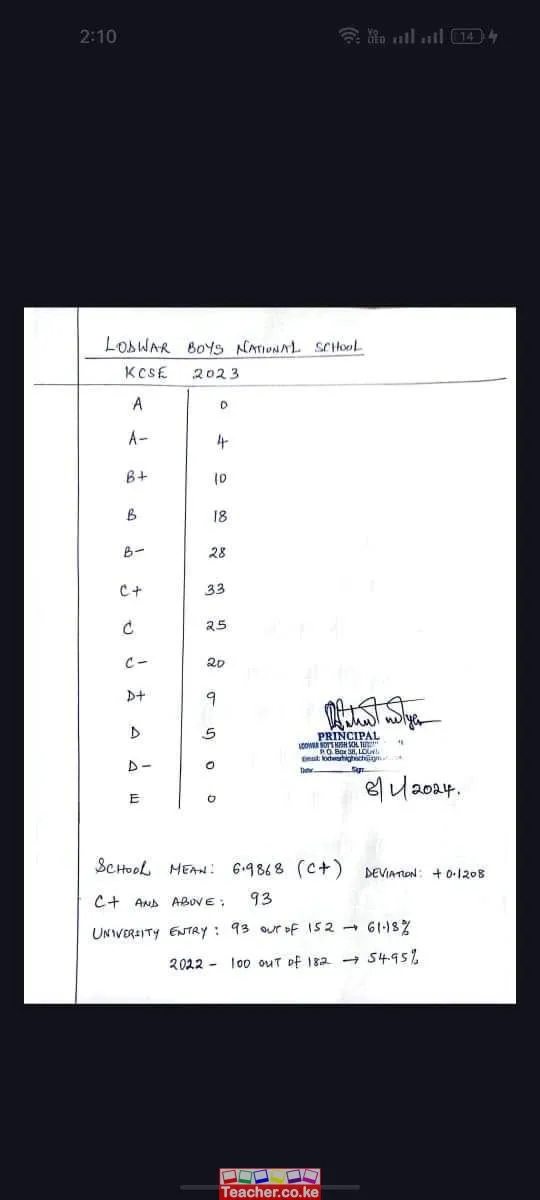 2:10
Yo LTE
14
LODWAR BOYS NATIONAL SCHOOL
KCSE 2023
A 0
A- 4
B+ 10
B 18
B- 28
C+ 33
C 25
C- 20
D+ 9
D 5
D- 0
E 0
PRINCIPAL
LODWAR BOY'S HIGH SCH.
P. O. Box 38,
Email: lodwarhighsch@gm
Date Sign
8/1/2024.
SCHOOL MEAN: 6.9868 (C+) DEVIATION: +0.1208
C+ AND ABOVE: 93
UNIVERSITY ENTRY: 93 OUT OF 152 → 61.18%
2022 - 100 OUT OF 182 → 54.95%
Teacher.co.ke